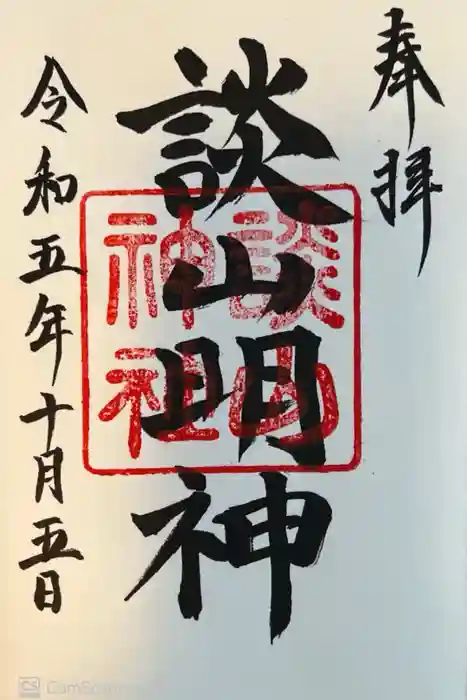 奉拝
談山明神
令和五年十月五日
談山
神社
CS CamScanner